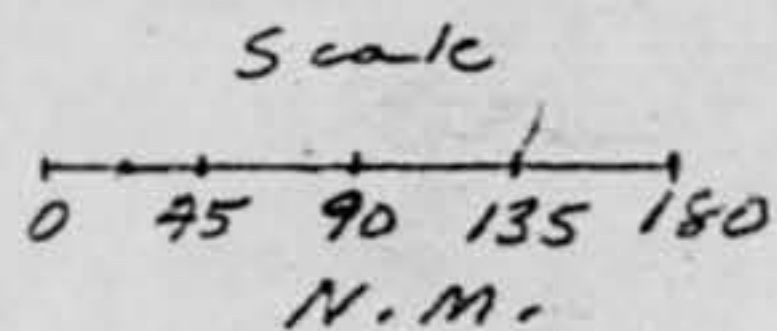 Scale
0 45 90 135 180
N.M.